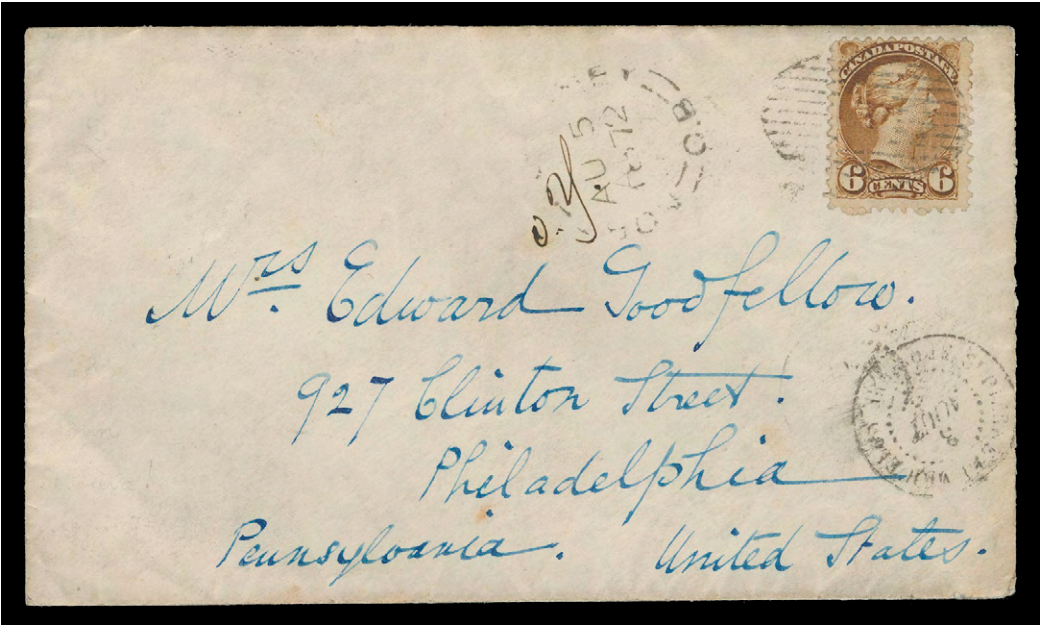 CANADA POSTAGE
6 CENTS 6
AU 5
72
C.B
Mrs. Edward Goodfellow.
927 Clinton Street.
Philadelphia
Pennsylvania. United States.